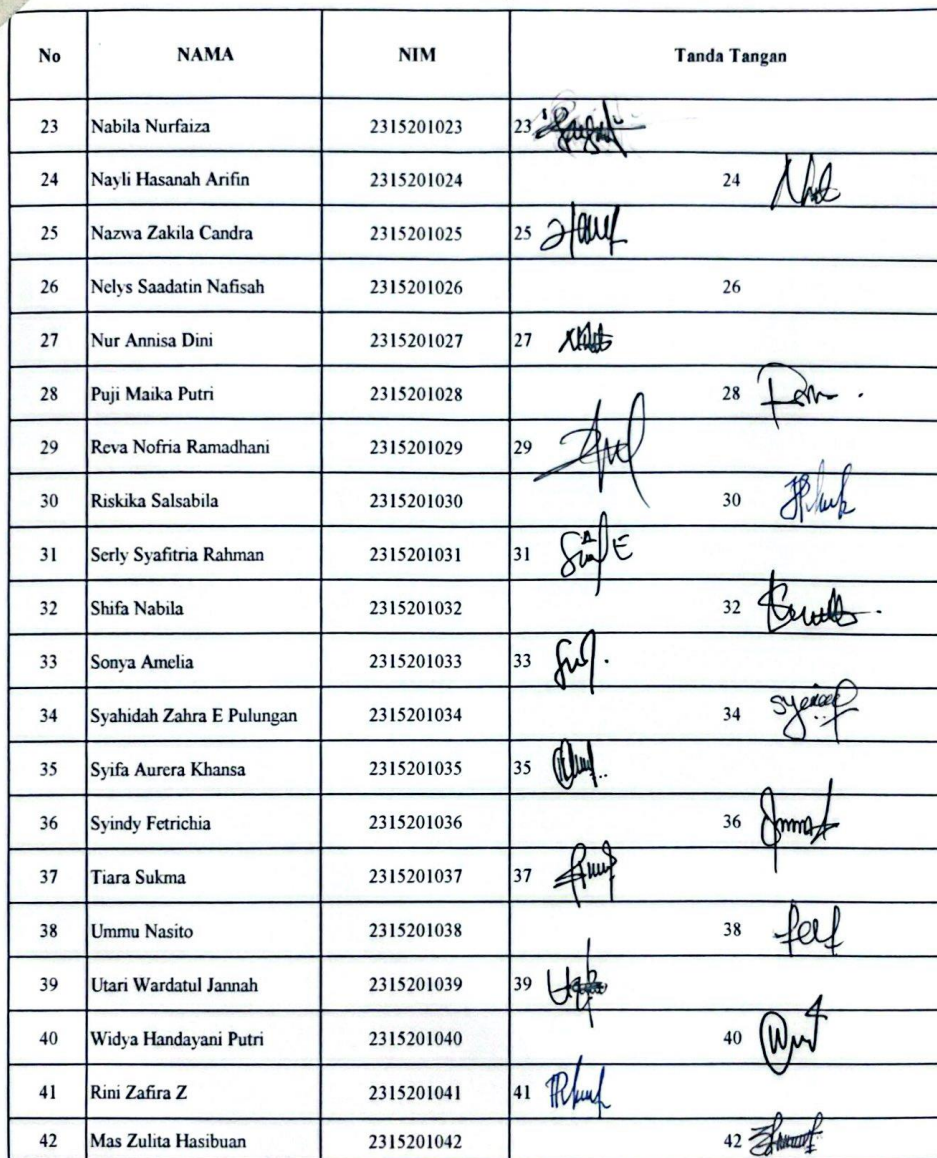 No NAMA NIM Tanda Tangan
23 Nabila Nurfaiza 2315201023 23
24 Nayli Hasanah Arifin 2315201024 24
25 Nazwa Zakila Candra 2315201025 25
26 Nelys Saadatin Nafisah 2315201026 26
27 Nur Annisa Dini 2315201027 27
28 Puji Maika Putri 2315201028 28
29 Reva Nofria Ramadhani 2315201029 29
30 Riskika Salsabila 2315201030 30
31 Serly Syafitria Rahman 2315201031 31
32 Shifa Nabila 2315201032 32
33 Sonya Amelia 2315201033 33
34 Syahidah Zahra E Pulungan 2315201034 34
35 Syifa Aurera Khansa 2315201035 35
36 Syindy Fetrichia 2315201036 36
37 Tiara Sukma 2315201037 37
38 Ummu Nasito 2315201038 38
39 Utari Wardatul Jannah 2315201039 39
40 Widya Handayani Putri 2315201040 40
41 Rini Zafira Z 2315201041 41
42 Mas Zulita Hasibuan 2315201042 42